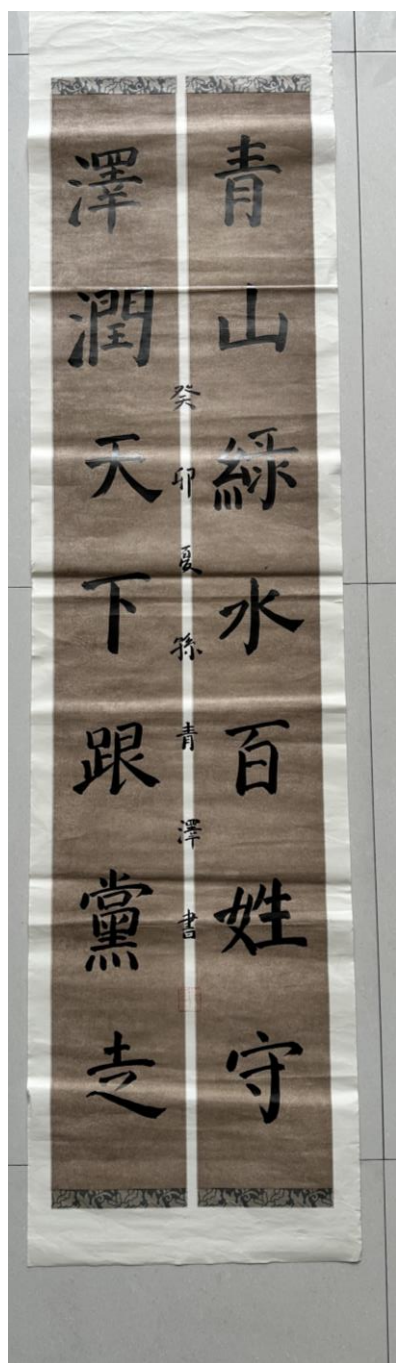 青山綠水百姓守
澤潤天下跟黨走
癸卯夏孫青澤書